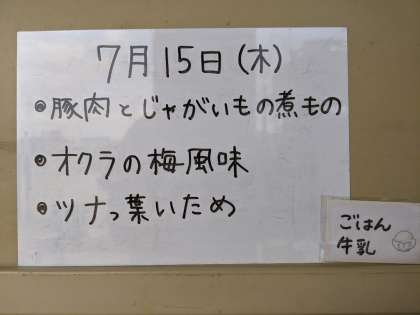 7月15日(木)
●豚肉とじゃがいもの煮もの
●オクラの梅風味
●ツナっ葉いため
ごはん
牛乳